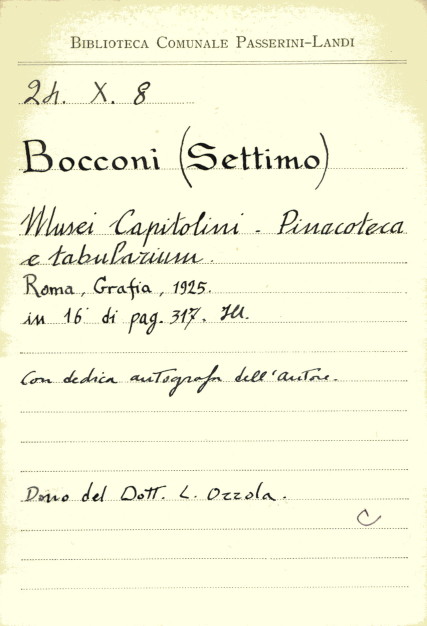 BIBLIOTECA COMUNALE PASSERINI-LANDI
2h. X. 8
Bocconi (Settimo)
Musei Capitolini - Pinacoteca
e tabularium.
Roma, Grafia, 1925.
in 16° di pag. 317. Ill.
Con dedica autografa dell'autore.
Dono del Dott. L. Ozzola.
C